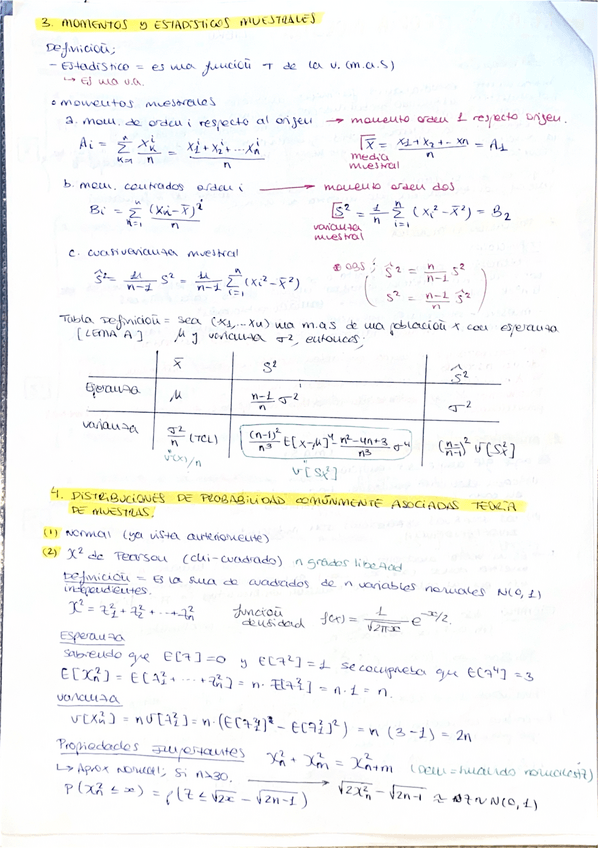 3. MOMENTOS Y ESTADÍSTICOS MUESTRALES
Definición;
- Estadístico = es una función T de la v. (m.a.s)
↳ Es una v.a.
• momentos muestrales
a. mom. de orden i respecto al origen → momento orden 1 respecto origen.
Ai = Σ_{k=1}^{n} X_k^i / n = (X_1^i + X_2^i + ... X_n^i) / n
X̄ = (X1 + X2 + ... Xn) / n = A1
media muestral
b. mom. centrados orden i → momento orden dos
Bi = Σ_{n=1}^{n} (Xi - X̄)^i / n
S² = 1/n Σ_{i=1}^{n} (Xi² - X̄²) = B2
varianza muestral
c. cuasivarianza muestral
Ŝ² = n/(n-1) S² = n/(n-1) Σ_{i=1}^{n} (Xi² - X̄²)
OBS; Ŝ² = n/(n-1) S²
S² = (n-1)/n Ŝ²
Tabla Definición = sea (X1, ... Xn) una m.a.s de una población X con esperanza
[LEMA A] μ y varianza σ², entonces;
X̄ S² Ŝ²
Esperanza μ (n-1)/n σ² σ²
varianza σ²/n (TCL) (n-1)²/n³ E[X-μ]⁴ (n²-4n+3)/n³ σ⁴ (n/(n-1))² V[S²x]
V(x)/n V[S²x]
4. DISTRIBUCIONES DE PROBABILIDAD COMÚNMENTE ASOCIADAS TEORÍA
DE MUESTRAS.
(1) Normal (ya vista anteriormente)
(2) X² de Pearson (chi-cuadrado) n grados libertad
Definición = Es la suma de cuadrados de n variables normales N(0,1)
independientes.
X² = Z_1² + Z_2² + ... + Z_n² función densidad f(x) = 1/√(2πx) e^{-x/2}.
Esperanza
sabiendo que E[Z] = 0 y E[Z²] = 1 se comprueba que E[Z⁴] = 3
E[X_n²] = E[Z_1² + ... + Z_n²] = n · E[Z_1²] = n · 1 = n.
varianza
V[X_n²] = n V[Z_1²] = n · (E[Z_1⁴] - E[Z_1²]²) = n (3 - 1) = 2n
Propiedades Importantes X_n² + X_m² = X_{n+m}²
↳ Aprox normal; Si n>30. → √(2X_n²) - √(2n-1) ≈ Z ~ N(0,1)
P(X_n² ≤ x) = P(Z ≤ √(2x) - √(2n-1))